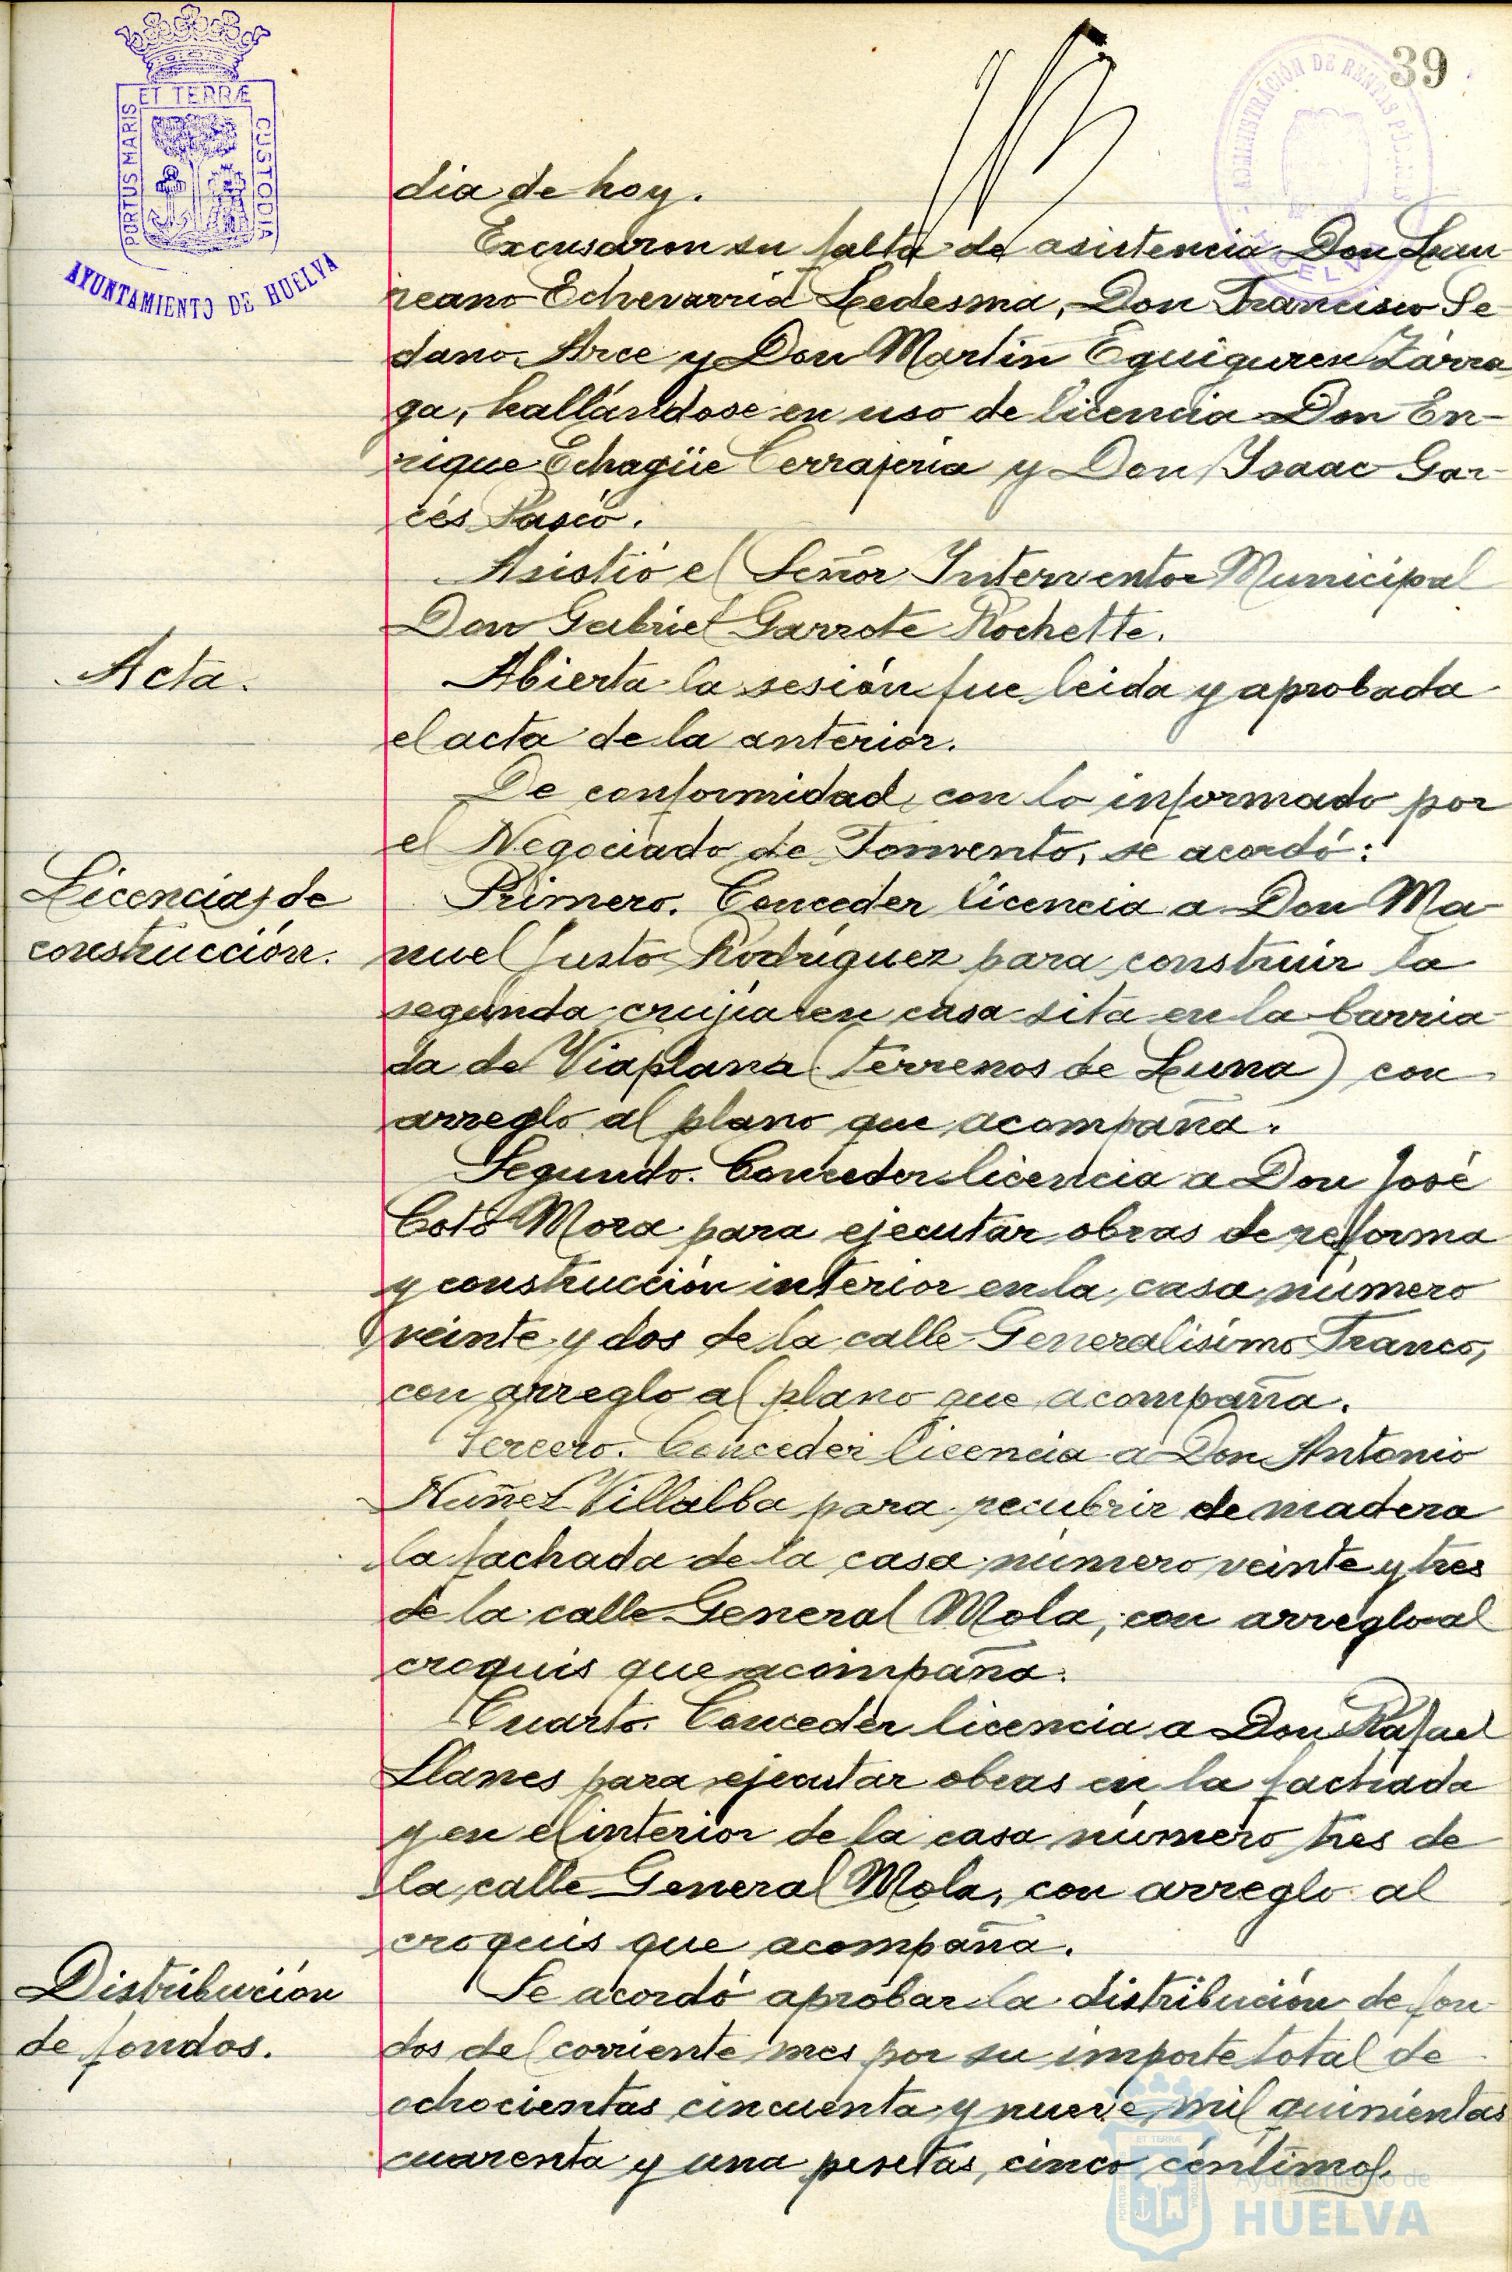 39
ET TERRÆ
PORTUS MARIS
CUSTODIA
AYUNTAMIENTO DE HUELVA
ADMINISTRACIÓN DE RENTAS PÚBLICAS
HUELVA
dia de hoy.
Excusaron su falta de asistencia Don Lau
reano Echevarria Ledesma, Don Francisco Se
dano Arce y Don Martin Eguiguren Zárra
ga, hallándose en uso de licencia Don En-
rique Echagüe Cerrajeria y Don Isaac Gar-
cés Pascó.
Asistió el Señor Interventor Municipal
Don Gabriel Garrote Rochette.
Acta.
Abierta la sesión fue leida y aprobada
el acta de la anterior.
De conformidad con lo informado por
el Negociado de Fomento, se acordó:
Licencias de
construcción.
Primero. Conceder licencia a Don Ma-
nuel Justo Rodríguez para construir la
segunda crujia en casa sita en la barria-
da de Viaplana (terrenos de Luna) con
arreglo al plano que acompaña.
Segundo. Conceder licencia a Don José
Coto Mora para ejecutar obras de reforma
y construcción interior en la casa número
veinte y dos de la calle Generalisimo Franco,
con arreglo al plano que acompaña.
Tercero. Conceder licencia a Don Antonio
Nuñez Villalba para recubrir de madera
la fachada de la casa número veinte y tres
de la calle General Mola, con arreglo al
croquis que acompaña.
Cuarto. Conceder licencia a Don Rafael
Llanes para ejecutar obras en la fachada
y en el interior de la casa número tres de
la calle General Mola, con arreglo al
croquis que acompaña.
Distribución
de fondos.
Se acordó aprobar la distribución de fon
dos del corriente mes por su importe total de
ochocientas cincuenta y nueve mil quinientas
cuarenta y una pesetas, cinco céntimos.
Ayuntamiento de
HUELVA